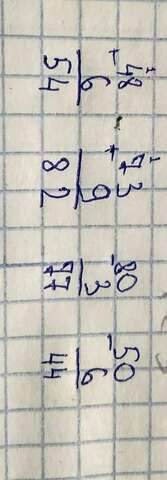 1
+ 48
6
54
1
+ 73
9
82
- 80
3
77
- 50
6
44